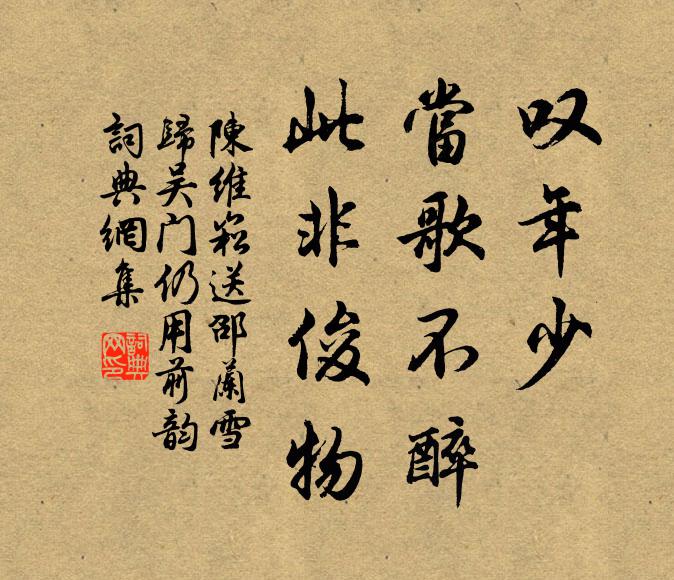 叹年少
當歌不醉
此非俊物
陳維崧送邵蘭雪
歸吴门仍用前韵
詞典網集
詞典网印